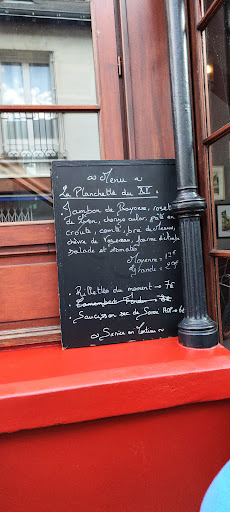 Menu
La Planchette du XI :
Jambon de Bayonne, rosette
de Lyon, chorizo cular, pâté en
croûte, comté, brie de Meaux,
chèvre de
salade et tomates
Moyenne = 12€
Grande =
. Rillettes du moment → 7€
. Camembert Fondu
. Saucisson sec de Savoie
Service en continu